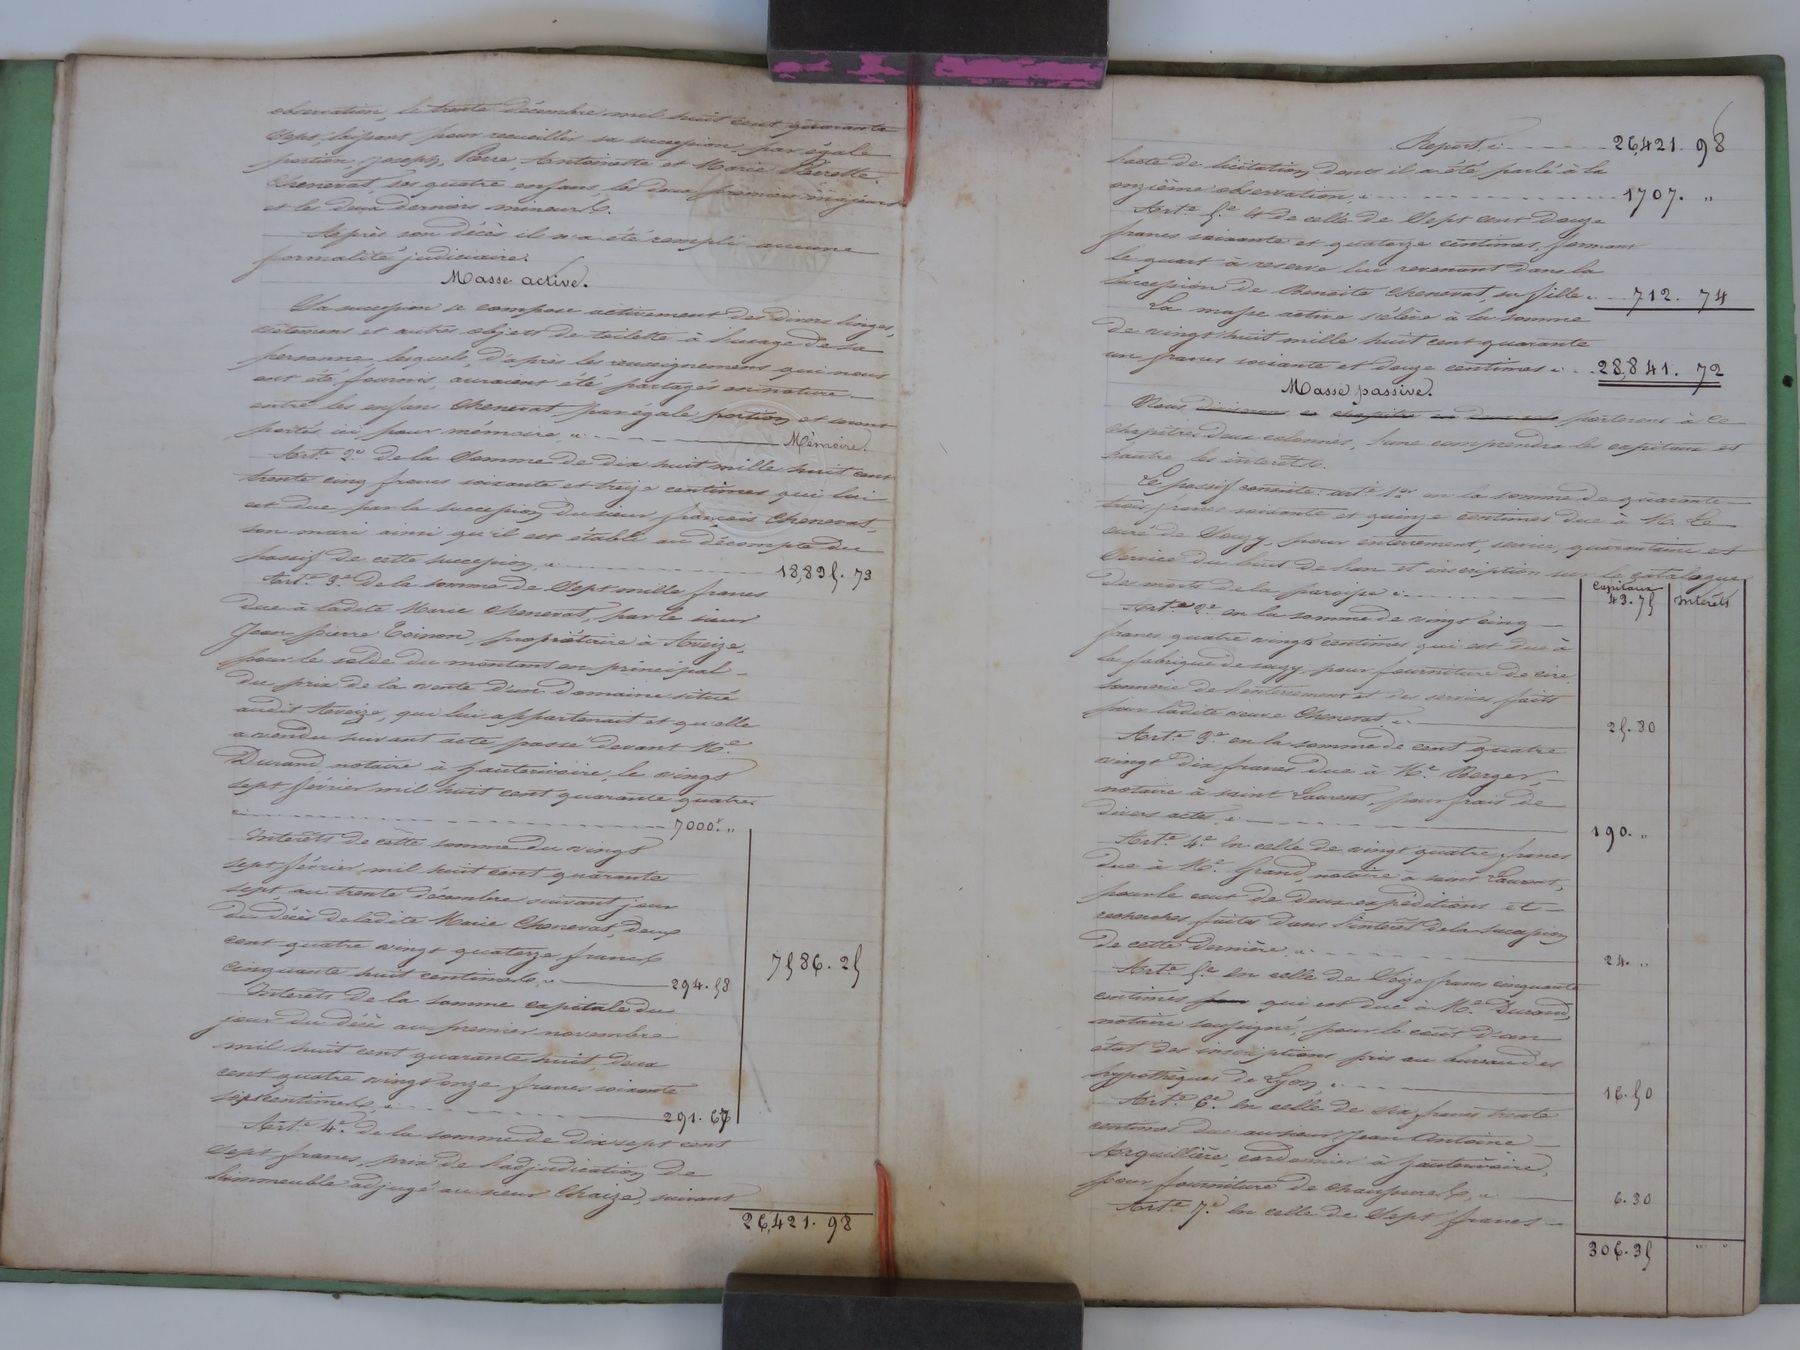 observation, le trente décembre mil huit cent quarante
sept, laissant pour recueillir sa succession, par égale
portion, Joseph, Pierre, Antoinette et Marie Pierrette
Chenevat, ses quatre enfans, les deux premiers majeurs
et les deux derniers mineurs.
Après son décès il n'a été rempli aucune
formalité judiciaire.
Masse active.
La succession se compose activement des divers linges,
vêtemens et autres objets de toilette à l'usage de sa
personne, lesquels, d'après les renseignemens qui nous
ont été fournis, auraient été partagés en nature
entre les enfans Chenevat par égale portion et seront
portés ici pour mémoire Mémoire.
Art.e 2.e de la Somme de dix huit mille huit cent
trente cinq francs soixante et treize centimes qui lui
est due par la succession du sieur françois Chenevat,
son mari ainsi qu'il est établi au décompte du
passif de cette succession, 18,835. 73
Art.e 3.e de la somme de Sept mille francs
due à ladite Marie Chenevat, par le sieur
Jean pierre Toinon, propriétaire à Aveize,
pour le solde du montant en principal
du prix de la vente d'un Domaine situé
audit Aveize, qui lui appartenait et qu'elle
a vendu suivant acte passé devant M.e
Durand notaire à hauterivoire, le vingt
sept février mil huit cent quarante quatre.
7000.f "
Intérêts de cette somme du vingt
sept février, mil huit cent quarante
sept au trente décembre suivant jour
du décès de ladite Marie Chenevat, deux
cent quatre vingt quatorze francs
cinquante huit centimes, 294. 58
7586. 25
Intérêts de la somme capitale du
jour du décès au premier novembre
mil huit cent quarante huit deux
cent quatre vingt onze francs soixante
sept centimes, 291. 67
Art.e 4.e de la somme de dix sept cent
sept francs, prix de l'adjudication de
l'immeuble adjugé au sieur Chaize, suivant
26,421. 98
Report 26,421. 98
l'acte de licitation dont il a été parlé à la
onzième observation, 1707. "
Art.e 5.e & de celle de Sept cent douze
francs soixante et quatorze centimes, formant
le quart à reserve lui revenant dans la
succession de Benoite Chenevat, sa fille 712. 74
La masse active s'élève à la somme
de vingt huit mille huit cent quarante
un francs soixante et douze centimes 28,841. 72
Masse passive.
Nous porterons à ce
chapitre deux colonnes, l'une comprendra les capitaux et
l'autre les intérêts.
Le passif consiste: art.e 1.er en la somme de quarante
trois francs soixante et quinze centimes due à M. le
curé de Souzy, pour enterrement, service, quarantaine et
service du bout de l'an et inscription sur le catalogue
des morts de la paroisse
Capitaux Intérêts
43. 75
Art.e 2.e en la somme de vingt cinq
francs quatre vingts centimes qui est due à
la fabrique de souzy pour fourniture de cire
sonnerie de l'enterrement et des services faits
pour ladite veuve Chenevat 25. 80
Art.e 3.e en la somme de cent quatre
vingt dix francs due à M.e Berger,
notaire à saint Laurent, pour frais de
divers actes 190. "
Art.e 4.e en celle de vingt quatre francs
due à M.e Grand, notaire à saint Laurent,
pour le cout de deux expéditions et
recherches faites dans l'intérêt de la succession
de cette dernière 24. "
Art.e 5.e en celle de Seize francs cinquante
centimes qui est due à M.e Durand,
notaire soussigné, pour le cout d'un
état des inscriptions pris au bureau des
hypothèques de Lyon 16. 50
Art.e 6.e en celle de six francs trente
centimes due au sieur Jean Antoine
Arquillière, cordonnier à hauterivoire,
pour fourniture de chaussures, 6. 30
Art.e 7.e en celle de Sept francs
306. 35 " "